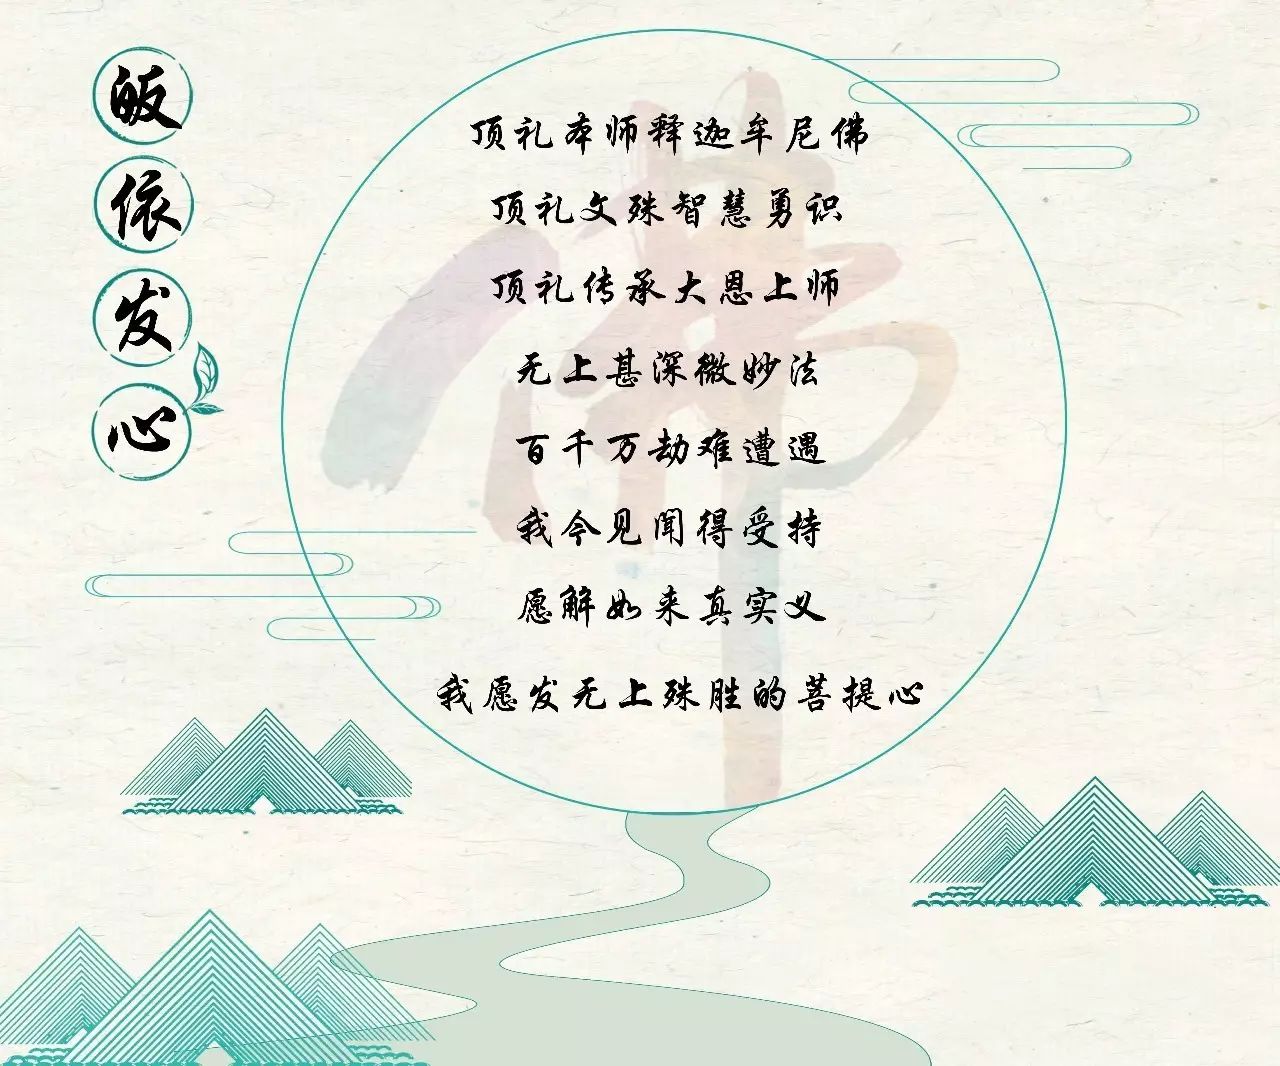 皈依发心
顶礼本师释迦牟尼佛
顶礼文殊智慧勇识
顶礼传承大恩上师
无上甚深微妙法
百千万劫难遭遇
我今见闻得受持
愿解如来真实义
我愿发无上殊胜的菩提心
佛